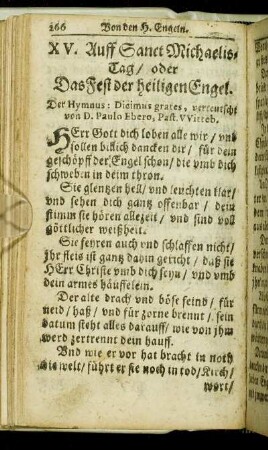 266 Von den H. Engeln.
XV. Auff Sanct Michaelis-
Tag/ oder
Das Fest der heiligen Engel.
Der Hymnus: Dicimus grates, verteutscht
von D. Paulo Ebero, Past. VVitteb.
HErr Gott dich loben alle wir/ vnd
sollen billich dancken dir/ für dein
geschöpff der Engel schon/ die vmb dich
schweben in deim thron.
Sie glentzen hell/ vnd leuchten klar/
vnd sehen dich gantz offenbar/ dein
stimm sie hören allezeit/ vnd sind voll
göttlicher weißheit.
Sie feyren auch vnd schlaffen nicht/
ihr fleis ist gantz dahin gericht/ daß sie
HErr Christe vmb dich seyn/ vnd vmb
dein armes häuffelein.
Der alte drach/ vnd böse feind/ für
neid/ haß/ vnd für zorne brennt/ sein
datum steht alles darauff/ wie von jhm
werd zertrennt dein hauff.
Vnd wie er vor hat bracht in noth
die welt/ führt er sie noch in tod/ Kirch/
wort/